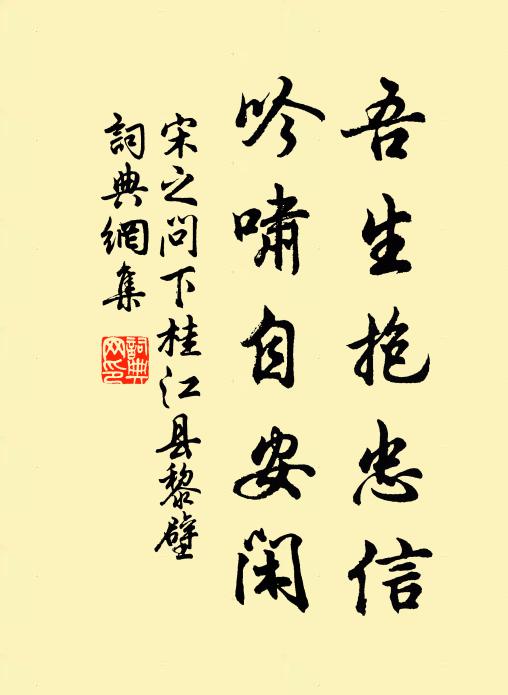 吾生抱忠信
吟啸自安闲
宋之问下桂江县黎壁
詞典網集
詞典网印